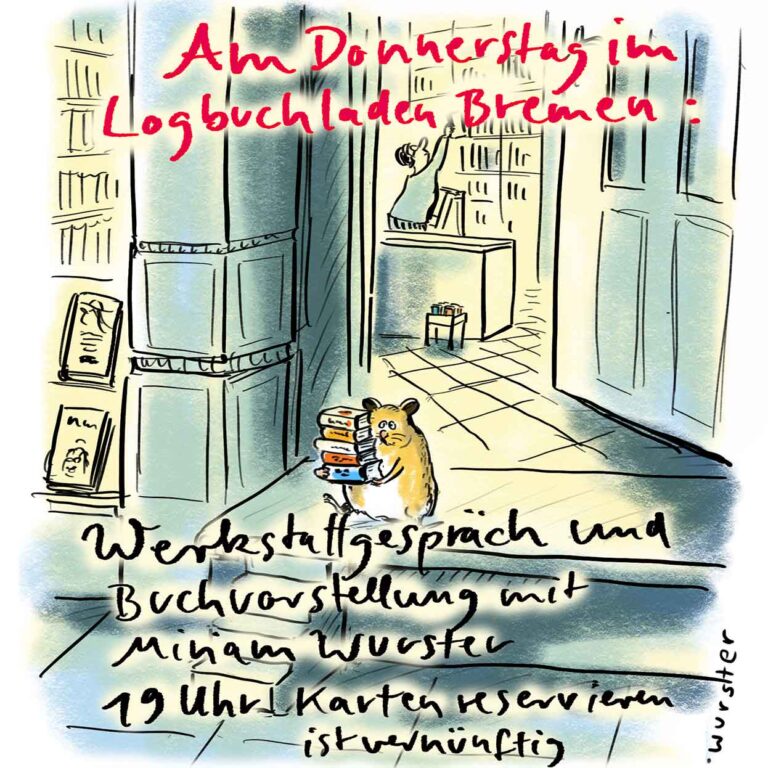 Am Donnerstag im
Logbuchladen Bremen:
Werkstattgespräch und
Buchvorstellung mit
Miriam Wurster
19 Uhr Karten reservieren
ist vernünftig
wurster